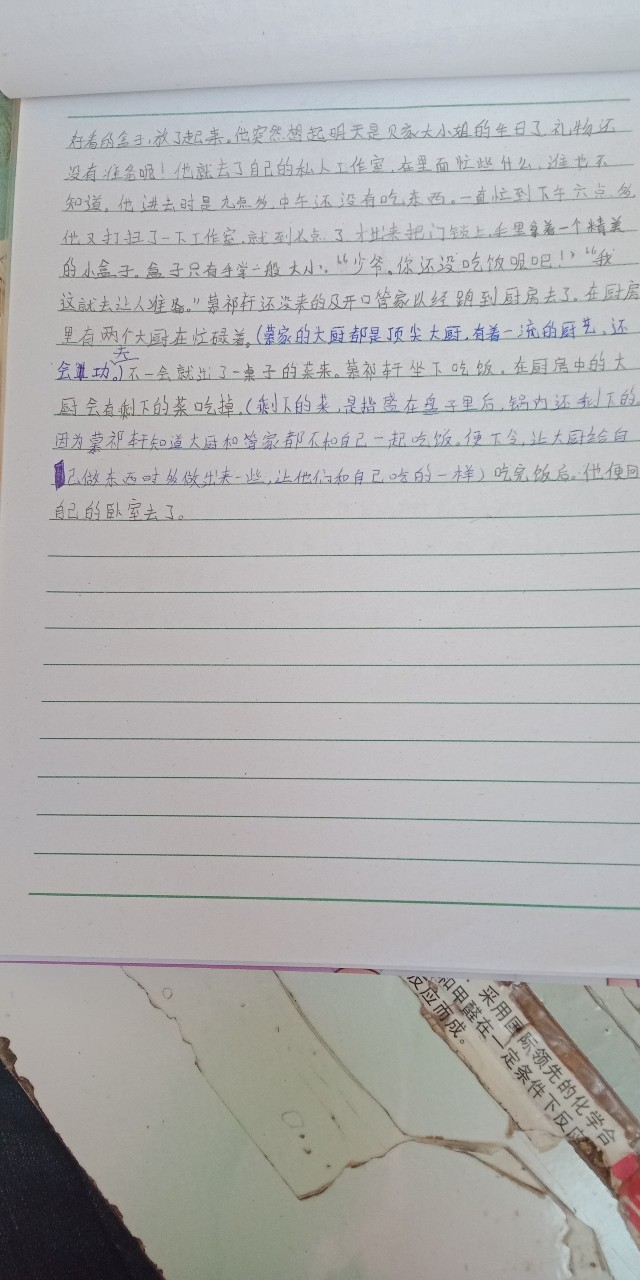 好看的盒子,放了起来。他突然想起明天是贝家大小姐的生日了,礼物还
没有准备呢!他就去了自己的私人工作室,在里面忙些什么,谁也不
知道。他进去时是九点多,中午还没有吃东西。一直忙到下午六点多
他又打扫了一下工作室,就到点了才出来把门锁上,手里拿着一个精美
的小盒子。盒子只有手掌一般大小。“少爷。你还没吃饭呢吧!”“我
这就去让人准备。”慕祁轩还没来的及开口管家以经跑到厨房去了。在厨房
里有两个大厨在忙碌着。(慕家的大厨都是顶尖大厨,有着一流的厨艺,还
会功夫)不一会就出了一桌子的菜来。慕祁轩坐下吃饭。在厨房中的大
厨会有剩下的菜吃掉。(剩下的菜,是指盛在盘子里后,锅内还剩下的
因为慕祁轩知道大厨和管家都不和自己一起吃饭。便下令,让大厨给自
己做东西时多做出来一些,让他们和自己吃的一样)吃完饭后。他便回
自己的卧室去了。
采用国际领先的化学合
和甲醛在一定条件下反应
反应而成。